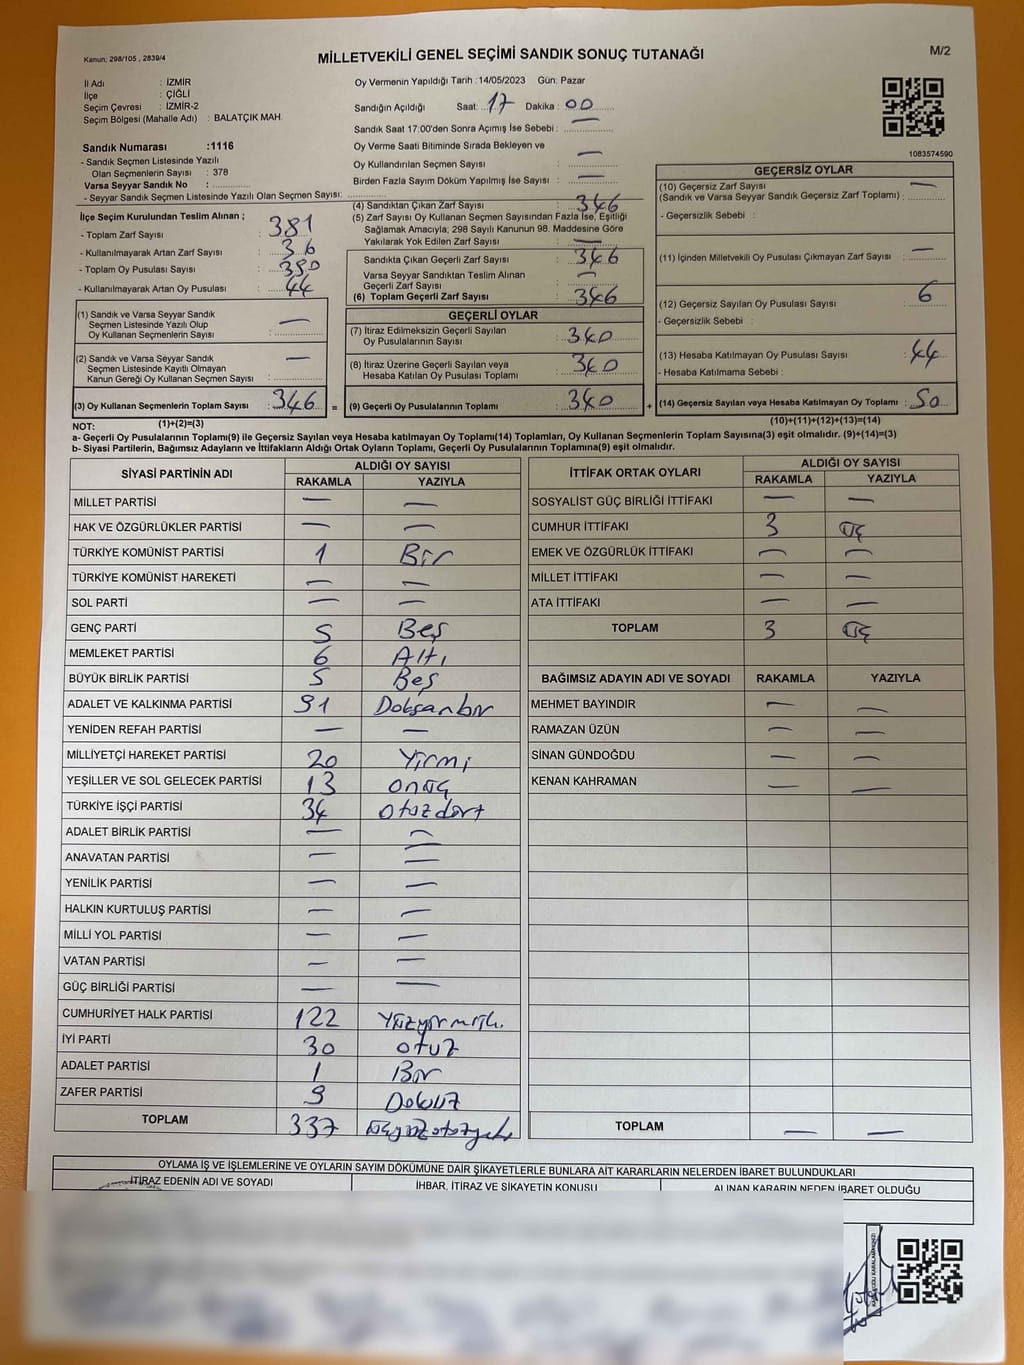 Kanun; 298/105 , 2839/4
MİLLETVEKİLİ GENEL SEÇİMİ SANDIK SONUÇ TUTANAĞI
M/2
İl Adı : İZMİR
İlçe : ÇİĞLİ
Seçim Çevresi : İZMİR-2
Seçim Bölgesi (Mahalle Adı) : BALATÇIK MAH.
Oy Vermenin Yapıldığı Tarih :14/05/2023 Gün: Pazar
Sandığın Açıldığı Saat: 17 Dakika : 00
Sandık Saat 17:00'den Sonra Açımış İse Sebebi : —
Oy Verme Saati Bitiminde Sırada Bekleyen ve
Oy Kullandırılan Seçmen Sayısı : —
Birden Fazla Sayım Döküm Yapılmış İse Sayısı : —
Sandık Numarası :1116
- Sandık Seçmen Listesinde Yazılı
Olan Seçmenlerin Sayısı : 378
Varsa Seyyar Sandık No :
- Seyyar Sandık Seçmen Listesinde Yazılı Olan Seçmen Sayısı:
1083574590
İlçe Seçim Kurulundan Teslim Alınan ;
- Toplam Zarf Sayısı : 381
- Kullanılmayarak Artan Zarf Sayısı : 36
- Toplam Oy Pusulası Sayısı : 390
- Kullanılmayarak Artan Oy Pusulası : 44
(1) Sandık ve Varsa Seyyar Sandık
Seçmen Listesinde Yazılı Olup
Oy Kullanan Seçmenlerin Sayısı : —
(2) Sandık ve Varsa Seyyar Sandık
Seçmen Listesinde Kayıtlı Olmayan
Kanun Gereği Oy Kullanan Seçmen Sayısı : —
(3) Oy Kullanan Seçmenlerin Toplam Sayısı : 346 =
(1)+(2)=(3)
(4) Sandıktan Çıkan Zarf Sayısı : 346
(5) Zarf Sayısı Oy Kullanan Seçmen Sayısından Fazla İse, Eşitliği
Sağlamak Amacıyla; 298 Sayılı Kanunun 98. Maddesine Göre
Yakılarak Yok Edilen Zarf Sayısı : —
Sandıkta Çıkan Geçerli Zarf Sayısı : 346
Varsa Seyyar Sandıktan Teslim Alınan
Geçerli Zarf Sayısı : —
(6) Toplam Geçerli Zarf Sayısı : 346
GEÇERLİ OYLAR
(7) İtiraz Edilmeksizin Geçerli Sayılan
Oy Pusulalarının Sayısı : 340
(8) İtiraz Üzerine Geçerli Sayılan veya
Hesaba Katılan Oy Pusulası Toplamı : 340
(9) Geçerli Oy Pusulalarının Toplamı : 340 +
GEÇERSİZ OYLAR
(10) Geçersiz Zarf Sayısı
(Sandık ve Varsa Seyyar Sandık Geçersiz Zarf Toplamı) : —
- Geçersizlik Sebebi :
(11) İçinden Milletvekili Oy Pusulası Çıkmayan Zarf Sayısı : —
(12) Geçersiz Sayılan Oy Pusulası Sayısı : 6
- Geçersizlik Sebebi :
(13) Hesaba Katılmayan Oy Pusulası Sayısı : 44
- Hesaba Katılmama Sebebi :
(14) Geçersiz Sayılan veya Hesaba Katılmayan Oy Toplamı : 50
(10)+(11)+(12)+(13)=(14)
NOT:
a- Geçerli Oy Pusulalarının Toplamı(9) ile Geçersiz Sayılan veya Hesaba katılmayan Oy Toplamı(14) Toplamları, Oy Kullanan Seçmenlerin Toplam Sayısına(3) eşit olmalıdır. (9)+(14)=(3)
b- Siyasi Partilerin, Bağımsız Adayların ve İttifakların Aldığı Ortak Oyların Toplamı, Geçerli Oy Pusulalarının Toplamına(9) eşit olmalıdır.
SİYASİ PARTİNİN ADI ALDIĞI OY SAYISI
RAKAMLA YAZIYLA
MİLLET PARTİSİ — —
HAK VE ÖZGÜRLÜKLER PARTİSİ — —
TÜRKİYE KOMÜNİST PARTİSİ 1 Bir
TÜRKİYE KOMÜNİST HAREKETİ — —
SOL PARTİ — —
GENÇ PARTİ 5 Beş
MEMLEKET PARTİSİ 6 Altı
BÜYÜK BİRLİK PARTİSİ 5 Beş
ADALET VE KALKINMA PARTİSİ 91 Doksanbir
YENİDEN REFAH PARTİSİ — —
MİLLİYETÇİ HAREKET PARTİSİ 20 Yirmi
YEŞİLLER VE SOL GELECEK PARTİSİ 13 onüç
TÜRKİYE İŞÇİ PARTİSİ 34 otuzdört
ADALET BİRLİK PARTİSİ — —
ANAVATAN PARTİSİ — —
YENİLİK PARTİSİ — —
HALKIN KURTULUŞ PARTİSİ — —
MİLLİ YOL PARTİSİ — —
VATAN PARTİSİ — —
GÜÇ BİRLİĞİ PARTİSİ — —
CUMHURİYET HALK PARTİSİ 122
İYİ PARTİ 30 otuz
ADALET PARTİSİ 1 Bir
ZAFER PARTİSİ 9 Dokuz
TOPLAM 337 üçyüzotuzyedi
İTTİFAK ORTAK OYLARI ALDIĞI OY SAYISI
RAKAMLA YAZIYLA
SOSYALİST GÜÇ BİRLİĞİ İTTİFAKI — —
CUMHUR İTTİFAKI 3 üç
EMEK VE ÖZGÜRLÜK İTTİFAKI — —
MİLLET İTTİFAKI — —
ATA İTTİFAKI — —
TOPLAM 3 üç
BAĞIMSIZ ADAYIN ADI VE SOYADI RAKAMLA YAZIYLA
MEHMET BAYINDIR — —
RAMAZAN ÜZÜN — —
SİNAN GÜNDOĞDU — —
KENAN KAHRAMAN — —
TOPLAM — —
OYLAMA İŞ VE İŞLEMLERİNE VE OYLARIN SAYIM DÖKÜMÜNE DAİR ŞİKAYETLERLE BUNLARA AİT KARARLARIN NELERDEN İBARET BULUNDUKLARI
İTİRAZ EDENİN ADI VE SOYADI İHBAR, İTİRAZ VE ŞİKAYETİN KONUSU ALINAN KARARIN NEDEN İBARET OLDUĞU